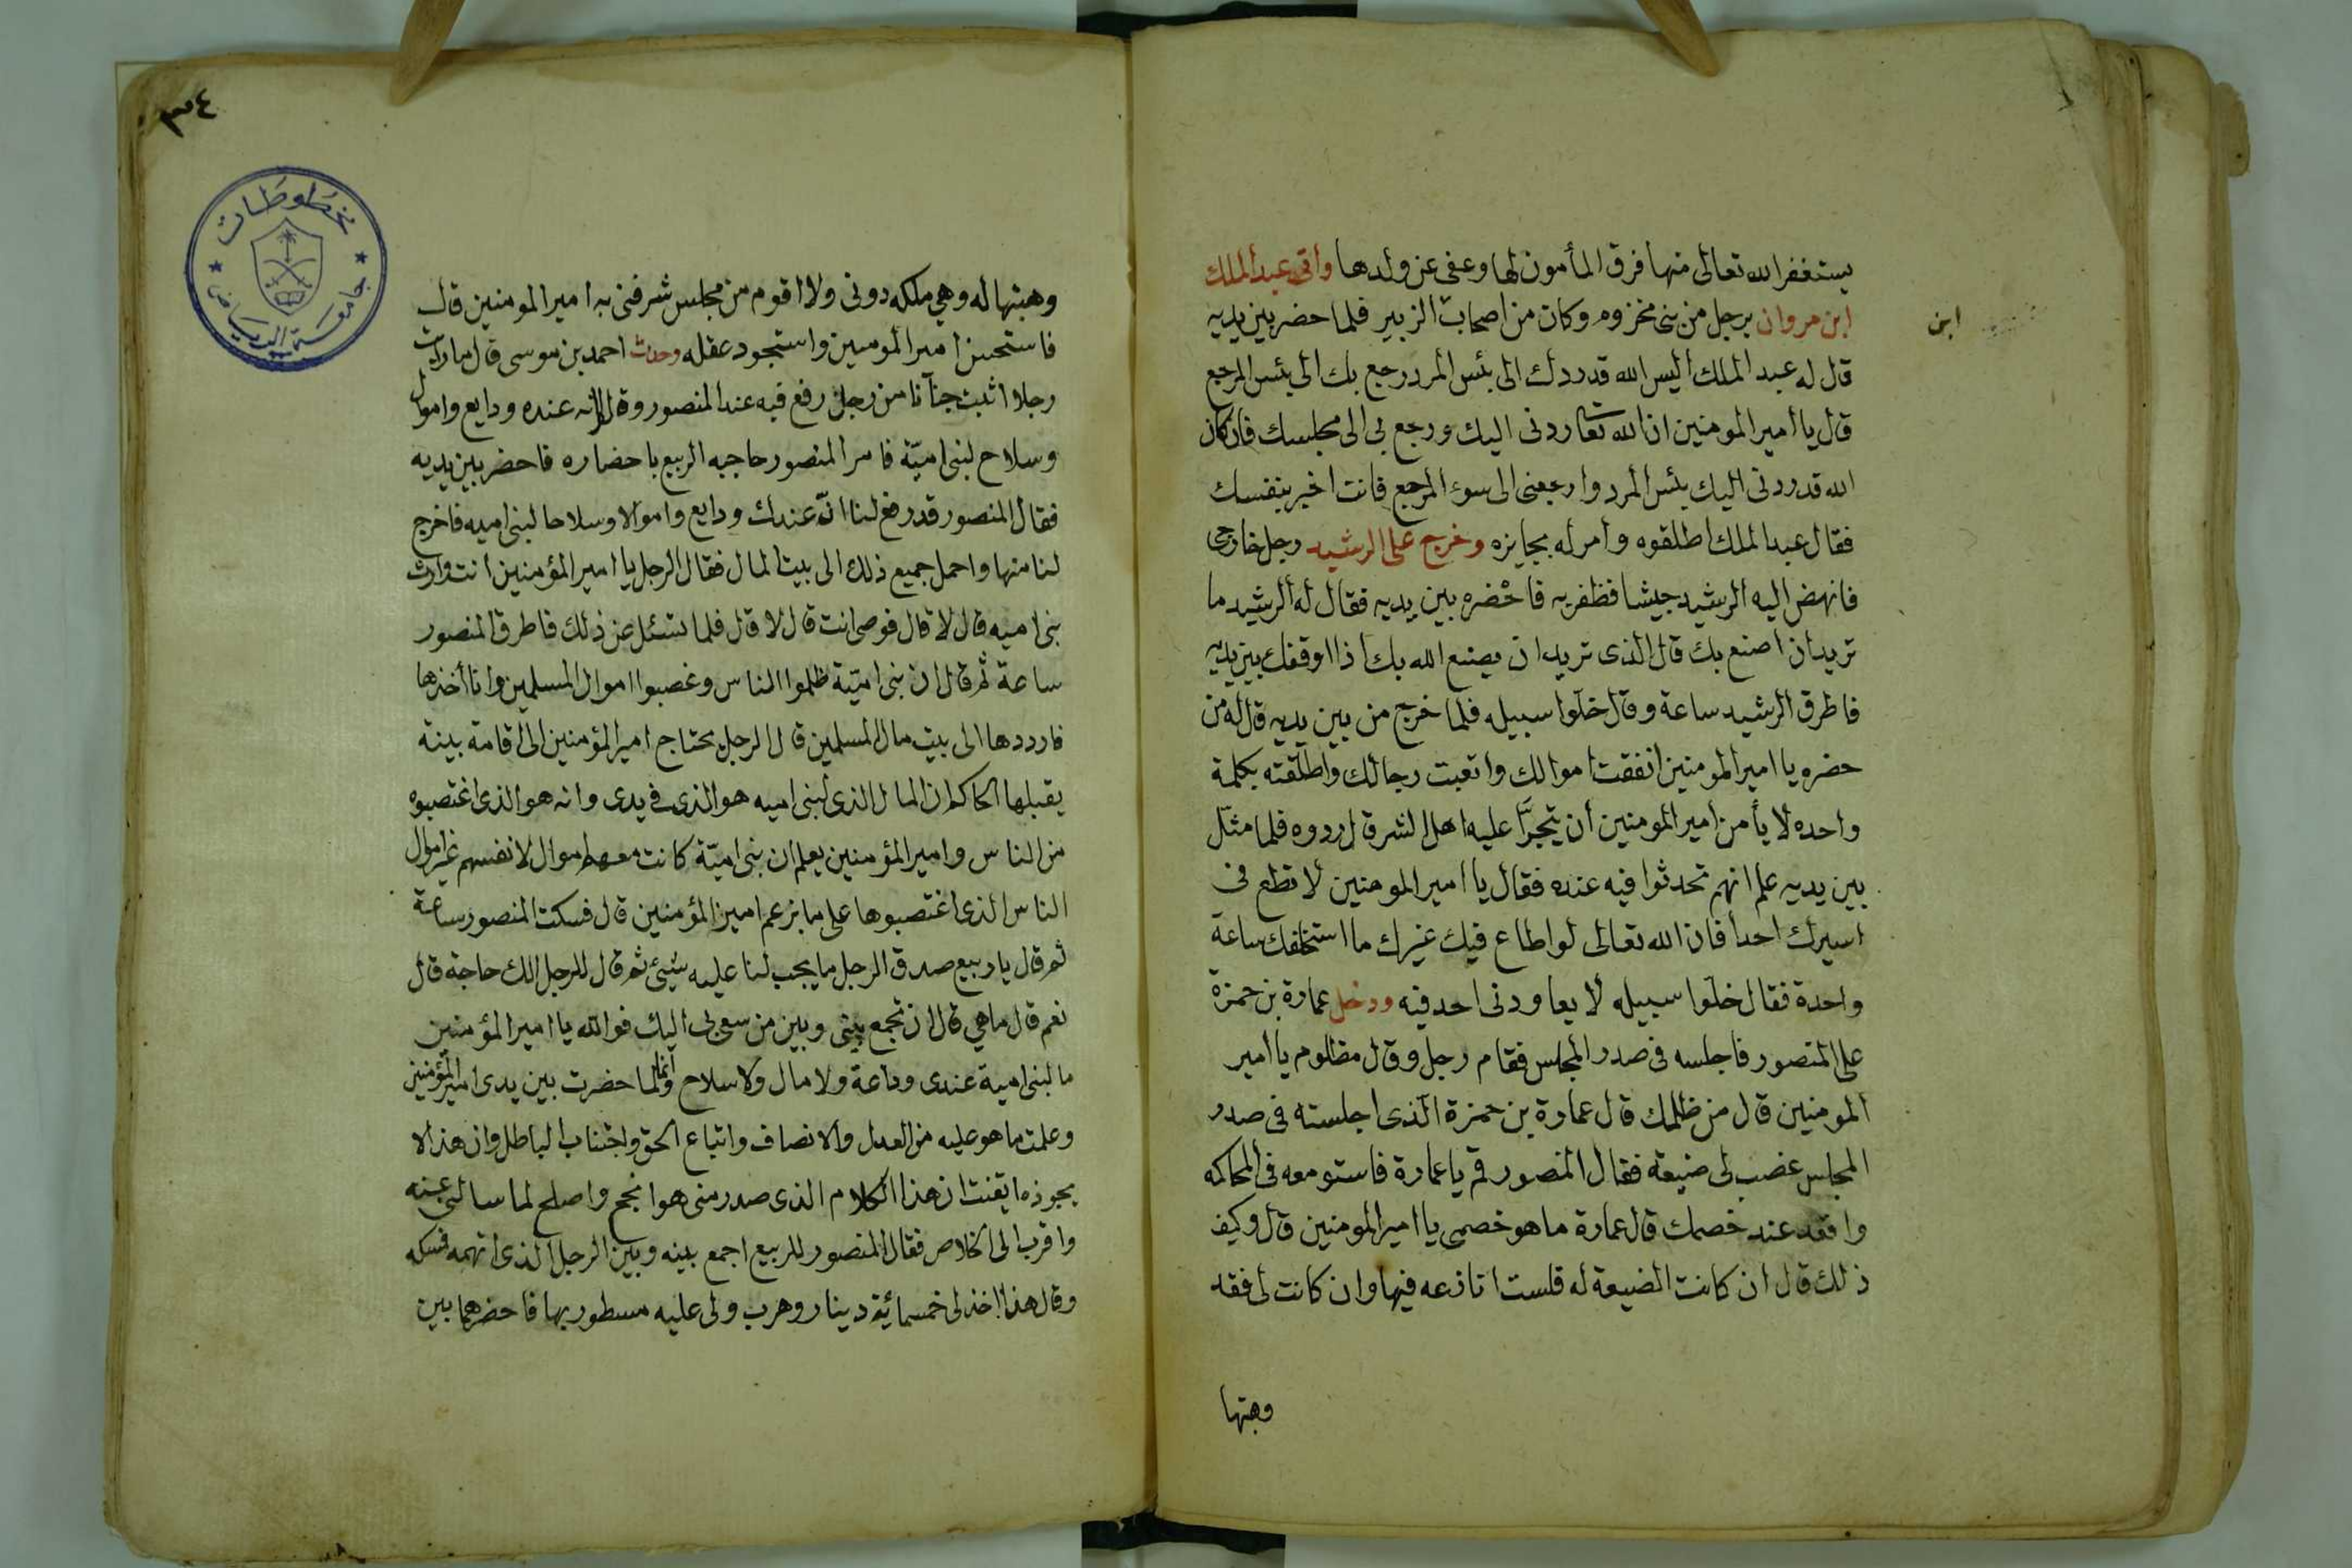 يستغفر الله تعالى منها فرق المأمون لها وعفى عن ولدها وأتى عبد الملك
ابن مروان برجل من بنى مخزوم وكان من اصحاب الزبير فلما حضر بين يديه
ابن
قال له عبد الملك أليس الله قد ردك الى بئس المرد رجع بك الى بئس المرجع
قال يا أمير المومنين ان الله تعا ردنى اليك ورجع بى الى مجلسك فان كان
الله قد ردنى اليك بئس المرد وارجعنى الى سوء المرجع فانت اخير بنفسك
فقال عبد الملك اطلقوه وأمر له بجايزه وخرج على الرشيد رجل خارجى
فانهض اليه الرشيد جيشا فظفر به فاحضره بين يديه فقال له الرشيد ما
تريد ان اصنع بك قال الذى تريد ان يصنع الله بك اذا اوقفك بين يديه
فاطرق الرشيد ساعة وقال خلوا سبيله فلما خرج من بين يديه قال له من
حضره يا امير المومنين انفقت اموالك واتعبت رجالك واطلقته بكلمة
واحده لا يأمن أمير المومنين أن يتجرّأ عليه اهل الشر قال ردوه فلما مثل
بين يديه علم انهم تحدثوا فيه عنده فقال يا امير المومنين لا تطع فى
اسيرك احدا فان الله تعالى لو اطاع فيك غيرك ما استخلفك ساعة
واحدة فقال خلوا سبيله لا يعاودنى احد فيه ودخل عمارة بن حمزة
على المنصور فاجلسه فى صدر المجلس فقام رجل وقال مظلوم يا أمير
المومنين قال من ظلمك قال عمارة بن حمزة الذى اجلسته فى صدر
المجلس غصب لى ضيعة فقال المنصور قم يا عمارة فاستو معه فى المحاكمه
واقعد عند خصمك قال عمارة ما هو خصمى يا امير المومنين قال وكيف
ذلك قال ان كانت الضيعة له فلست انازعه فيها وان كانت لى فقد
وهبتها
٣٤
مخطوطات
جامعة الرياض
وهبتها له وهي ملكه دونى ولا اقوم من مجلس شرفنى به امير المومنين قال
فاستحسن امير المومنين واستجود عقله وحدث احمد بن موسى قال ما رايت
رجلا اثبت جنآنا من رجل رفع فيه عند المنصور وقال انه عنده ودايع واموال
وسلاح لبنى اميّة فامر المنصور حاجبه الربيع باحضاره فاحضر بين يديه
فقال المنصور قد رفع لنا انّ عندك ودايع واموالا وسلاحا لبنى اميه فاخرج
لنا منها واحمل جميع ذلك الى بيت المال فقال الرجل يا امير المؤمنين انت وارث
بنى اميه قال لا قال فوصى انت قال لا قال فلما تسئل عن ذلك فاطرق المنصور
ساعة ثم قال ان بنى اميّة ظلموا الناس وغصبوا اموال المسلمين وانا أخذها
فارددها الى بيت مال المسلمين قال الرجل يحتاج امير المؤمنين الى اقامة بينة
يقبلها الحاكم ان المال الذى لبنى اميه هو الذى فى يدى وانه هو الذى اغتصبوه
من الناس وامير المؤمنين يعلم ان بنى اميّة كانت معهم اموال لانفسهم غير اموال
الناس الذى اغتصبوها على ما يزعم امير المؤمنين قال فسكت المنصور ساعة
ثم قال يا ربيع صدق الرجل ما يجب لنا عليه شيئ ثم قال للرجل الك حاجة قال
نعم قال ما هي قال ان تجمع بينى وبين من سعى بى اليك فوالله يا امير المؤمنين
ما لبنى امية عندى وداعة ولا مال ولا سلاح وانما لما حضرت بين يدى امير المؤمنين
وعلمت ما هو عليه من العدل والانصاف واتباع الحق واجتناب الباطل وان هذا لا
ايقنت ان هذا الكلام الذى صدر منى هو انجح واصلح لما سالنى عنه
واقرب الى الخلاص فقال المنصور للربيع اجمع بينه وبين الرجل الذى اتهمه فمسكه
وقال هذا اخذ لى خمسمائة دينار وهرب ولى عليه مسطور بها فاحضرهما بين